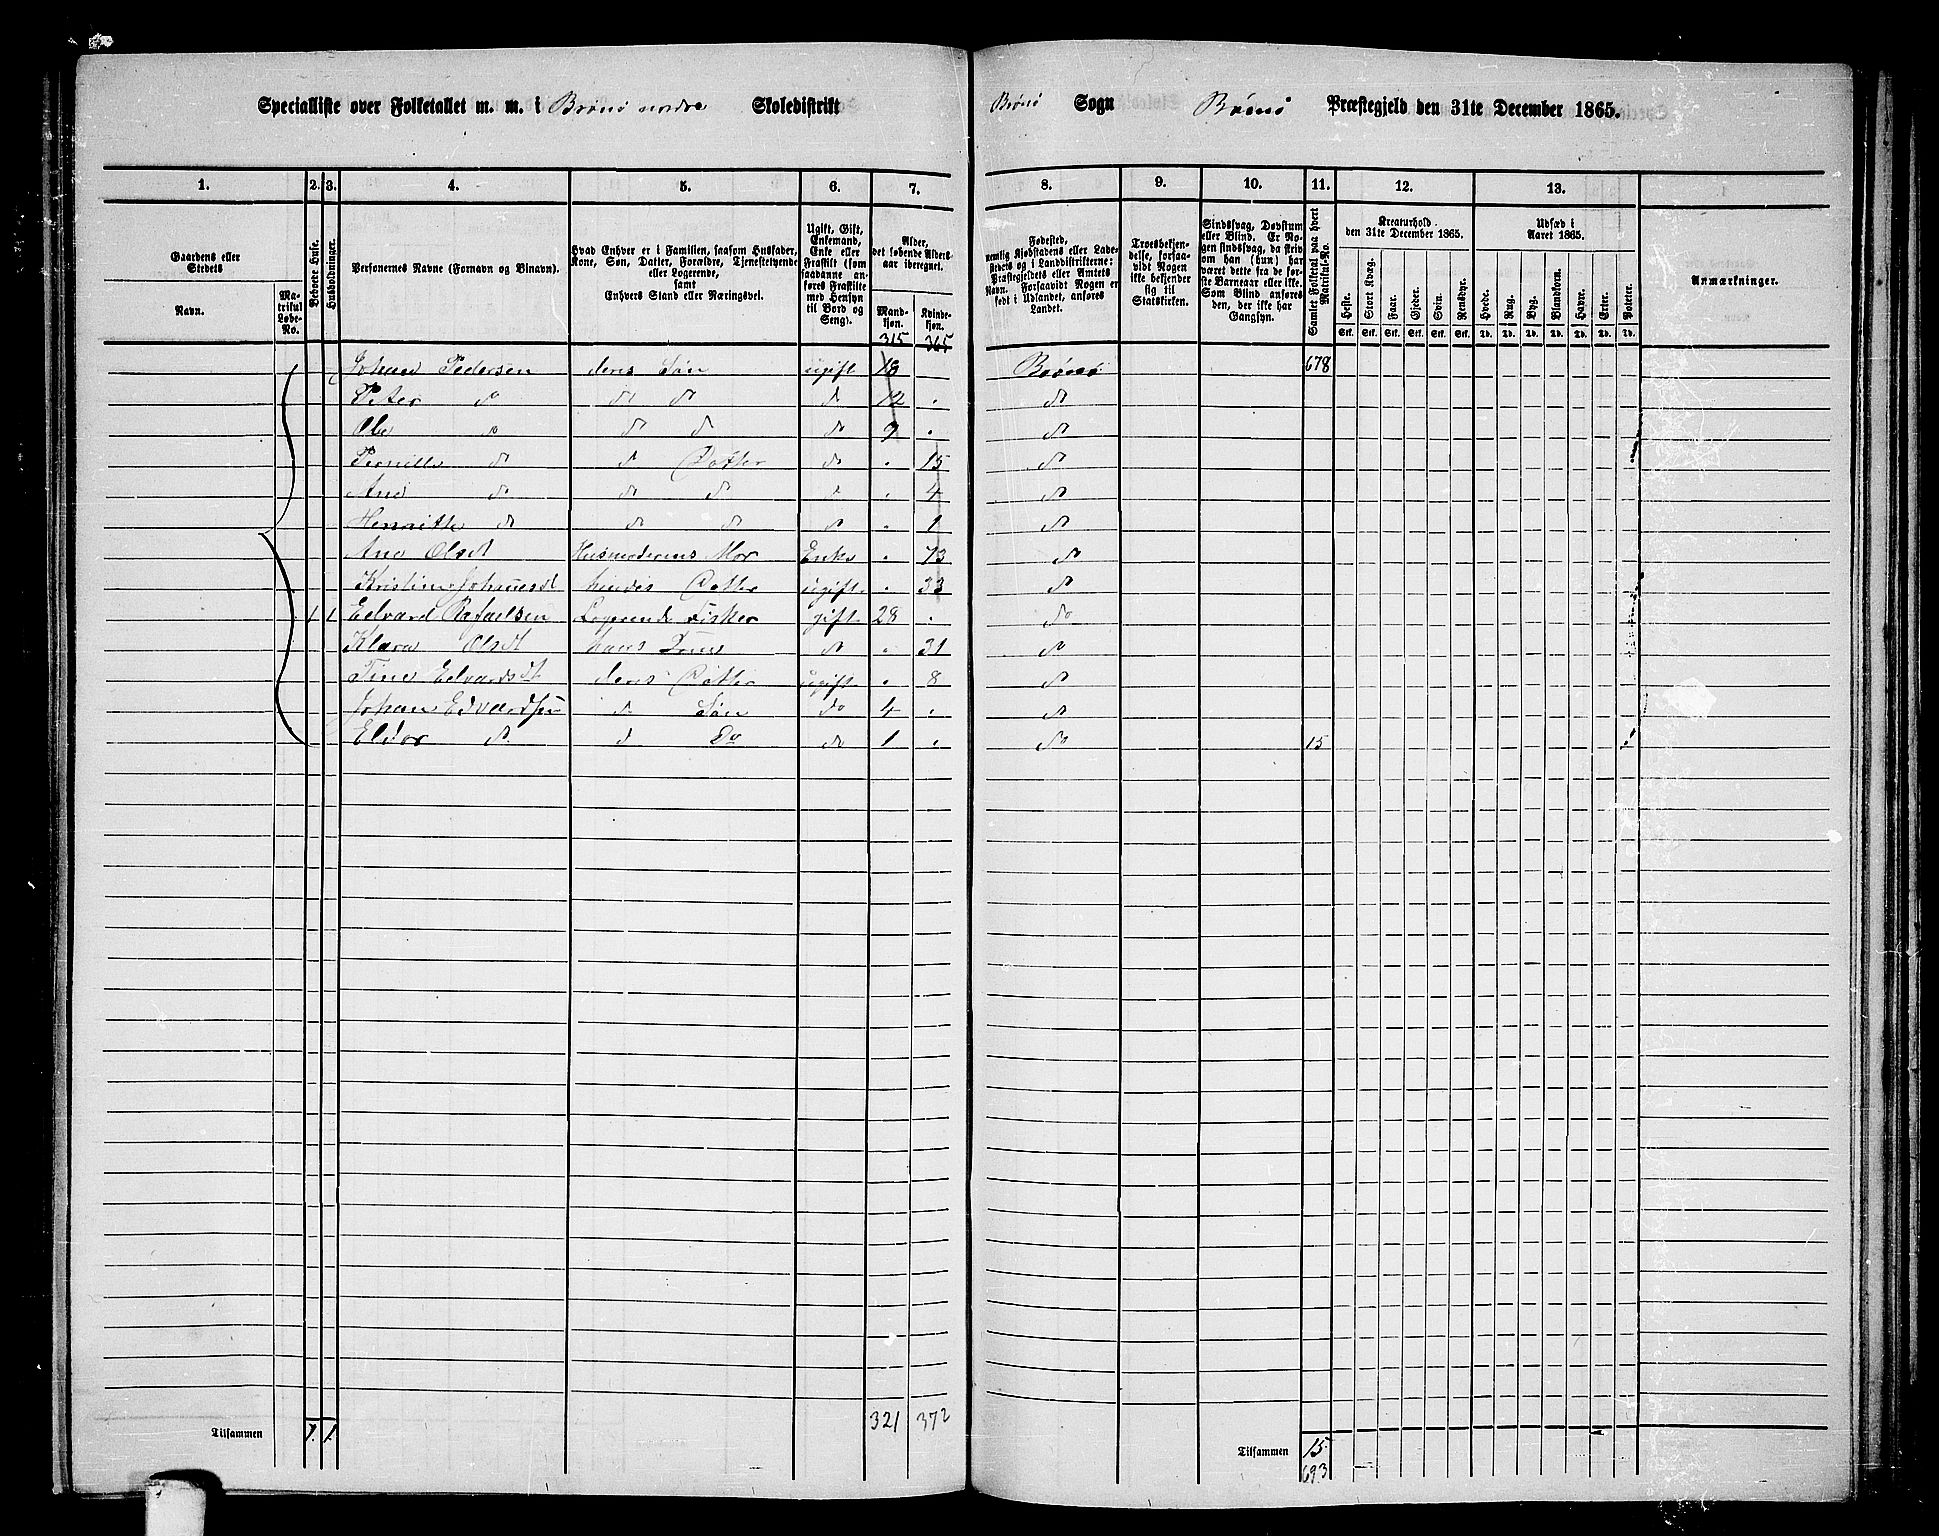 Specialliste over Folketallet m. m. i Brönö nordre Skoledistrikt Brönö Sogn Brönö Præstegjeld den 31te December 1865.
1. 2. 3. 4. 5. 6. 7. 8. 9. 10. 11. 12. 13.
Gaardens eller Stedets
Navn.
Matrikul Løbe-No.
Beboede Huse.
Husholdninger.
Personernes Navne (Fornavn og Binavn).
Hvad Enhver er i Familien, saasom Husfader, Kone, Søn, Datter, Forældre, Tjenestetyende eller Logerende, samt Enhvers Stand eller Næringsvei.
Ugift, Gift, Enkemand, Enke eller Fraskilt (som saadanne anføres Fraskilte med Hensyn til Bord og Seng).
Alder, det løbende Alders-aar iberegnet.
Mandkjøn.
Kvindekjøn.
Fødested, nemlig Kjøbstadens eller Ladestedets og i Landdistrikterne: Præstegjeldets eller Amtets Navn. Forsaavidt Nogen er født i Udlandet, anføres Landet.
Troesbekjendelse, forsaavidt Nogen ikke bekjender sig til Statskirken.
Sindssvag, Døvstum eller Blind. Er Nogen sindssvag, da skriv om han (hun) har været dette fra de første Barneaar eller ikke. Som Blind anføres den, der ikke har Gangsyn.
Samlet Folketal paa hvert Matrikul-No.
Kreaturhold den 31te December 1865.
Heste. Stort Kvæg. Faar. Gjeder. Svin. Rensdyr.
Stk. Stk. Stk. Stk. Stk. Stk.
Udsæd i Aaret 1865.
Hvede. Rug. Byg. Blandkorn. Havre. Erter. Poteter.
Td. Td. Td. Td. Td. Td. Td.
Anmærkninger.
315 365
Johan Pedersen deres Søn ugift 18 Brönö 678
Peter do do do do 12 . do
Ole do do do do 9 . do
Pernille do do Datter do . 15 do
Ane do do do do . 4 do
Henritte do do do do . 1 do
Ane Olsdt Husmoderens Mor Enke . 73 do
Kristine Johnesdt hendes Datter ugift . 33 do
1 1 Edvard Rafaelsen Logerende Fisker gift 28 . do
Klara Olsdt hans Kone do . 31 do
Tine Edvardsdt deres Datter ugift . 8 do
Johan Edvardsen d Søn do 4 . do
Eldor do d Do do 1 . do 15
Tilsammen 1. 1. 321 372 Tilsammen 15
693